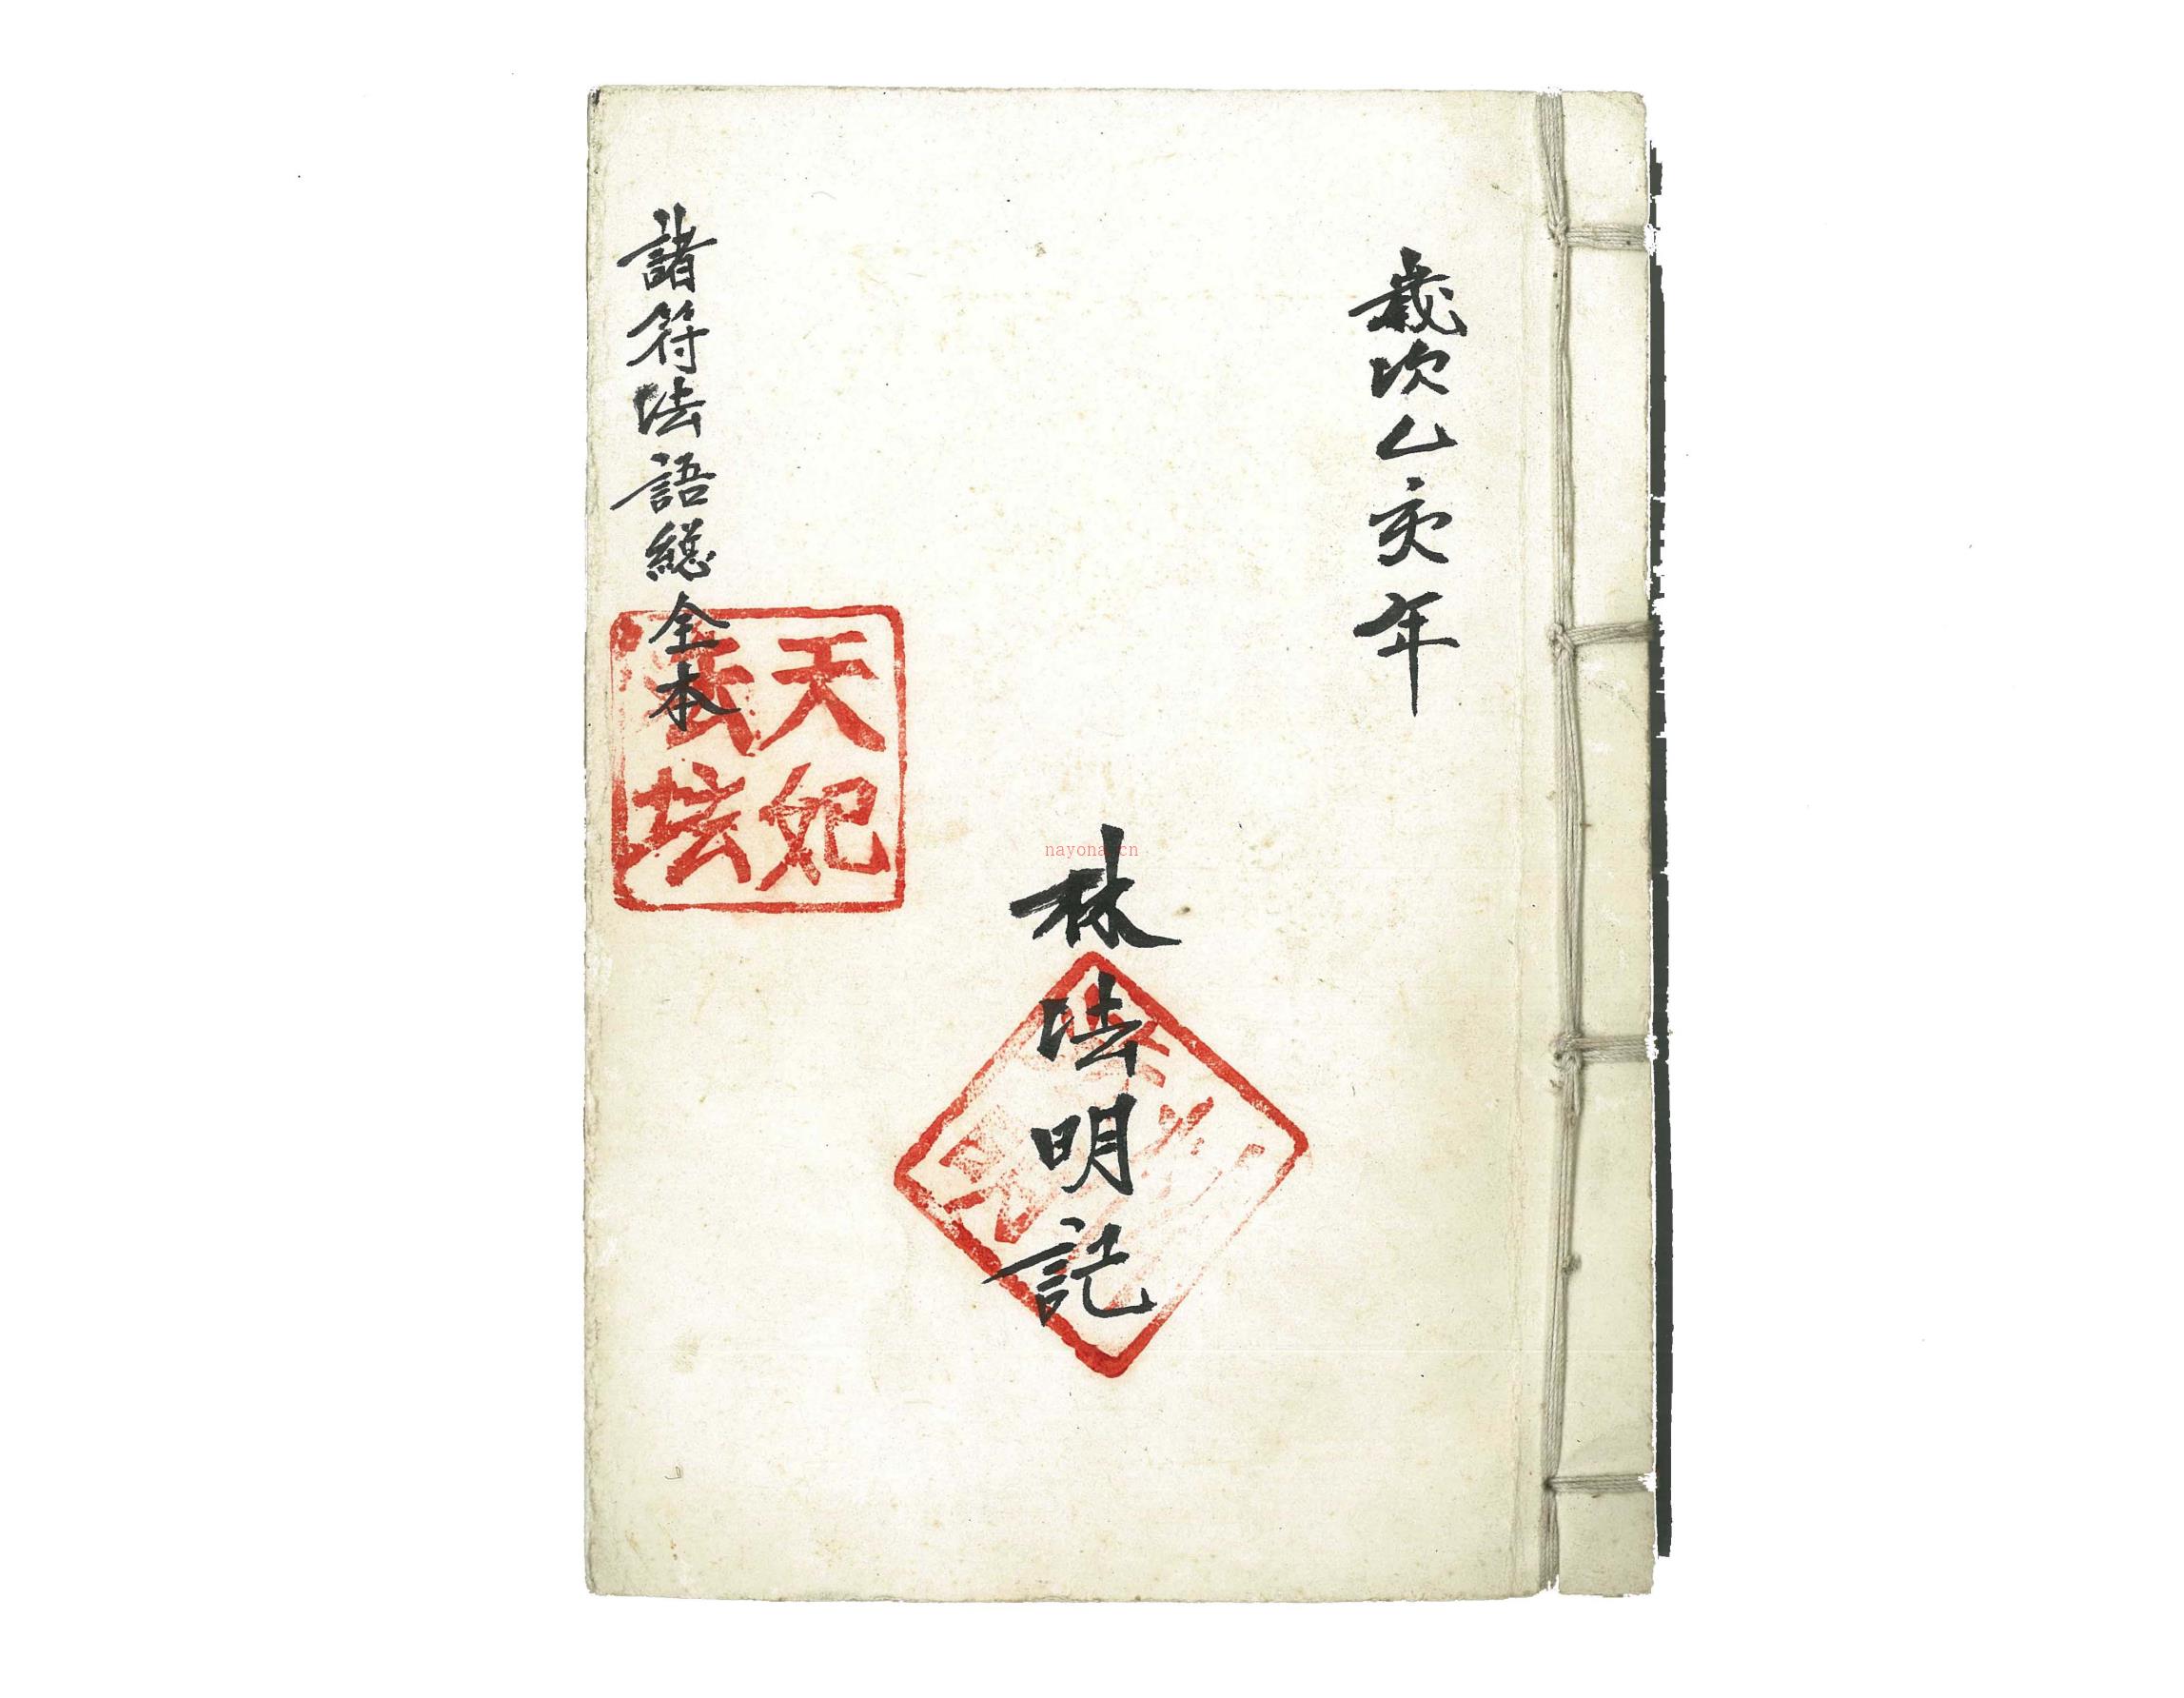 歲次乙亥年
林法明記
諸符法語總全本
天妃
法坛
nayona.cn